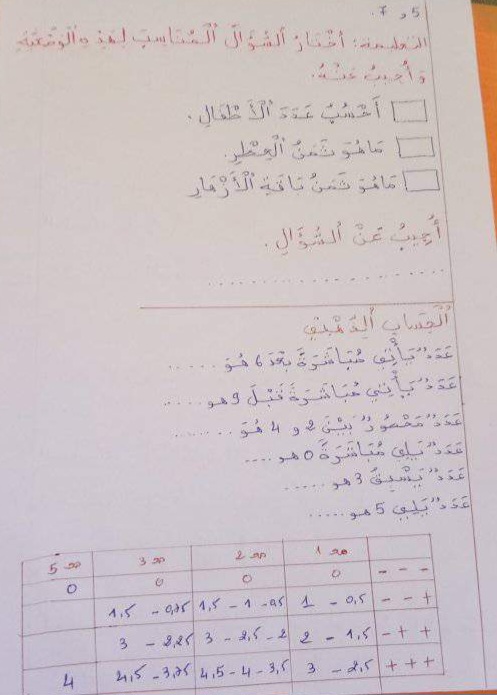 5 و 7.
التعليمة: أَخْتَارُ السُّؤَالَ الْمُنَاسِبَ لِهَذِهِ الْوَضْعِيَّةِ
وَ أُجِيبُ عَنْهُ.
أَحْسُبُ عَدَدَ الْأَطْفَالِ.
مَا هُوَ ثَمَنُ الْعِطْرِ.
مَا هُوَ ثَمَنُ بَاقَةِ الْأَزْهَارِ
أُجِيبُ عَنْ السُّؤَالِ.
......................
الْحِسَاب الذِّهْنِي
عَدَدٌ يَأْتِي مُبَاشَرَةً بَعْدَ 6 هُوَ ....
عَدَدٌ يَأْتِي مُبَاشَرَةً قَبْلَ 9 هو .....
عَدَدٌ مَحْصُورٌ بَيْنَ 2 و 4 هُوَ .......
عَدَدٌ يَلِي مُبَاشَرَةً 0 هو ....
عَدَدٌ يَسْبِقُ 3 هو .....
عَدَدٌ يَلِي 5 هو .....
مع 1 مع 2 مع 3 مع 5
- - - 0 0 0 0
- - + 0,5 - 1 0,5 - 1 - 1,5 0,75 - 1,5
- + + 1,5 - 2 2 - 2,5 - 3 2,25 - 3
+ + + 2,5 - 3 3,5 - 4 - 4,5 3,75 - 4,5 4